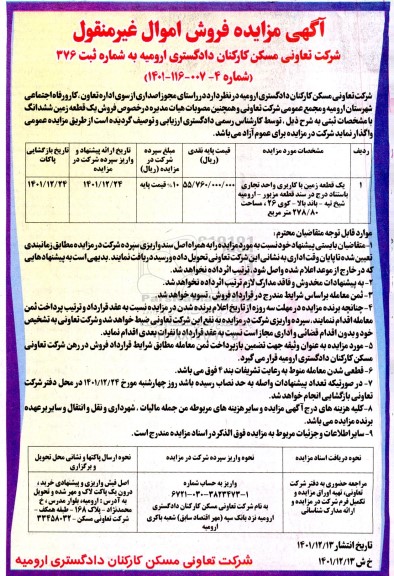 آگهی مزایده فروش اموال غیرمنقول
شرکت تعاونی مسکن کارکنان دادگستری ارومیه به شماره ثبت ۳۷۶
(شماره ۴- ۰۰۷-۱۱۶-۱۴۰۱)
شرکت تعاونی مسکن کارکنان دادگستری ارومیه در نظر دارد در راستای مجوز اصداری از سوی اداره تعاون، کار و رفاه اجتماعی
شهرستان ارومیه و مجمع عمومی شرکت تعاونی و همچنین مصوبات هیات مدیره در خصوص فروش یک قطعه زمین ششدانگ
با مشخصات ثبتی به شرح ذیل، توسط کارشناس رسمی دادگستری ارزیابی و توصیف گردیده است از طریق مزایده عمومی
واگذار نماید شرکت در مزایده برای عموم آزاد می‌باشد.
ردیف
مشخصات مورد مزایده
قیمت پایه نقدی (ریال)
مبلغ سپرده شرکت در مزایده (ریال)
تاریخ ارائه پیشنهاد و واریز سپرده شرکت در مزایده
تاریخ بازگشایی پاکات
۱
یک قطعه زمین با کاربری واحد تجاری
باستناد درج در سند قطعه مزبور - ارومیه
شیخ تپه - باند بالا - کوی ۲۶، مساحت
۲۷۸/۸۰ متر مربع
۵۵/۷۶۰/۰۰۰/۰۰۰
۱۰% قیمت پایه
۱۴۰۱/۱۲/۲۴
۱۴۰۱/۱۲/۲۴
موارد قابل توجه متقاضیان محترم:
۱- متقاضیان بایستی پیشنهاد خود نسبت به مورد مزایده را به همراه اصل سند واریزی سپرده شرکت در مزایده مطابق زمانبندی
تعیین شده تا پایان وقت اداری به نشانی این شرکت تعاونی تحویل داده و رسید دریافت نمایند. بدیهی است به پیشنهادهایی
که در خارج از موعد اعلام شده واصل شود، ترتیب اثر داده نخواهد شد.
۲- به پیشنهادات مخدوش و فاقد مدارک لازم ترتیب اثر داده نخواهد شد.
۳- ثمن معامله براساس شرایط مندرج در قرارداد فروش، تسویه خواهد شد.
۴- چنانچه برنده مزایده در مهلت سه روزه از تاریخ اعلام برنده شدن در مزایده نسبت به عقد قرارداد و ترتیب پرداخت ثمن
معامله اقدام ننمایند. سپرده واریزی شرکت در مزایده به نفع این شرکت تعاونی ضبط خواهد شد و شرکت تعاونی به تشخیص
خود و بدون اقدام قضائی و اداری مجاز است نسبت به عقد قرارداد با نفرات بعدی اقدام نماید.
۵- مورد مزایده به عنوان وثیقه جهت تضمین بازپرداخت ثمن معامله مطابق شرایط قرارداد فروش در رهن شرکت تعاونی
مسکن کارکنان دادگستری ارومیه قرار می گیرد.
۶- قطعی شدن معامله منوط به رعایت تشریفات بند ۴ فوق می باشد.
۷- در صورتیکه تعداد پیشنهادات واصله به حد نصاب رسیده باشد روز چهارشنبه مورخ ۱۴۰۱/۱۲/۲۴ در محل دفتر شرکت
تعاونی بازگشایی انجام خواهد شد.
۸- کلیه هزینه های درج آگهی مزایده و سایر هزینه های مربوطه من جمله مالیات، شهرداری و نقل و انتقال و سایر برعهده
برنده مزایده می باشد.
۹- سایر اطلاعات و جزئیات مربوط به مزایده فوق الذکر در اسناد مزایده مندرج است.
نحوه دریافت اسناد مزایده
نحوه واریز سپرده شرکت در مزایده
نحوه ارسال پاکتها و نشانی محل تحویل و برگزاری
مراجعه حضوری به دفتر شرکت
تعاونی، تهیه اوراق مزایده و
تکمیل فرم شرکت در مزایده و
ارائه مدارک شناسائی
واریز به حساب شماره
۶۷۲۱-۰۳۰-۳۸۲۳۴۷۳-۱
به نام شرکت تعاونی مسکن کارکنان دادگستری
ارومیه نزد بانک سپه (مهر اقتصاد سابق) شعبه باکری
ارومیه
اصل فیش واریزی و پیشنهادی خرید،
درون یک پاکت لاک و مهر شده و تحویل
به آدرس: ارومیه، بلوار مدرس، خ
محمدنژاد - پلاک ۱۶۸ - طبقه همکف -
شرکت تعاونی مسکن - ۳۳۴۵۸۰۳۲
تاریخ انتشار ۱۴۰۱/۱۲/۱۳
خ ش ۱۴۰۱/۱۲/۱۳
شرکت تعاونی مسکن کارکنان دادگستری ارومیه